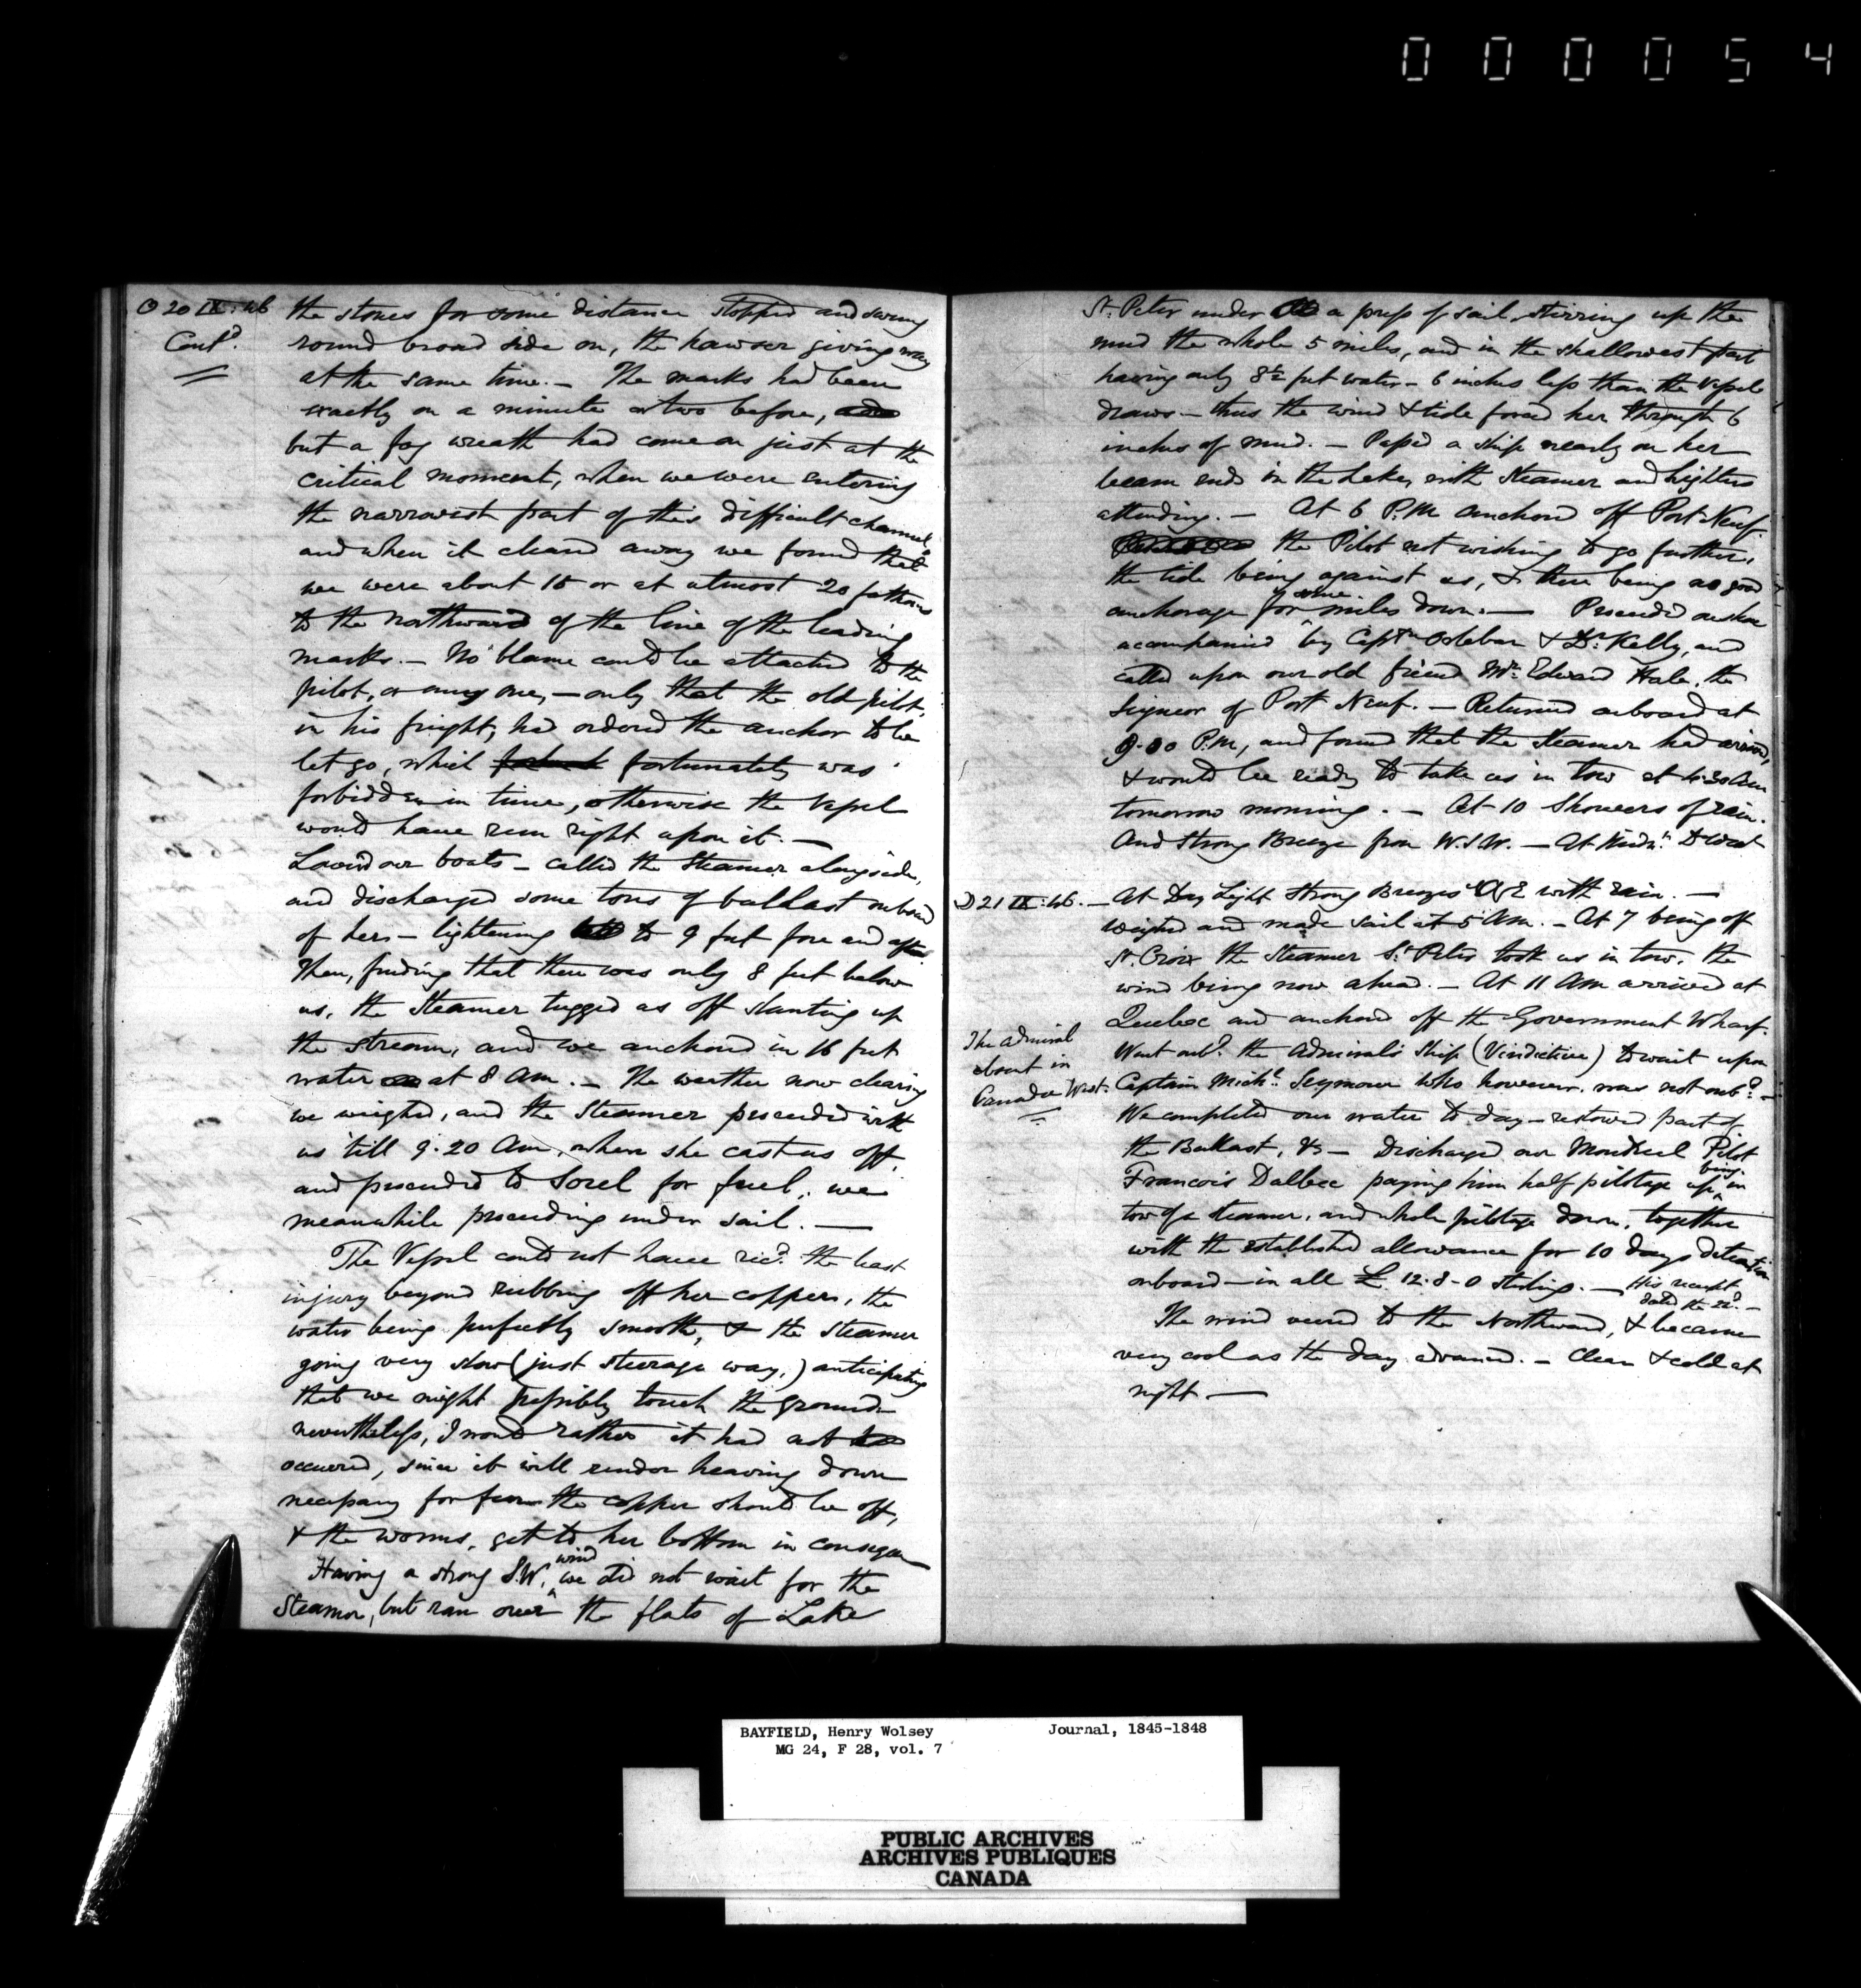 000054
☉ 20 IX: 46
Cont.d
the stones for some distance stopped and swung
round broad side on, the hawser giving way
at the same time. — The marks had been
exactly on a minute or two before,
but a fog wreath had come on just at the
critical moment, when we were entering
the narrowest part of this difficult channel,
and when it cleared away we found that
we were about 15 or at utmost 20 fathoms
to the northward of the line of the leading
marks. — No blame could be attached to the
pilot, or any one, — only that the old pilot,
in his fright, had ordered the anchor to be
let go, which fortunately was
forbidden in time, otherwise the Vessel
would have run right upon it. —
Lowered our boats — called the Steamer alongside,
and discharged some tons of ballast onboard
of hers — lightening to 9 feet fore and aft
Then, finding that there was only 8 feet below
us, the Steamer tugged us off slanting up
the stream, and we anchored in 16 feet
water at 8 Am. — The weather now clearing
we weighed, and the Steamer proceeded with
us 'till 9.20 Am, when she cast us off,
and proceeded to Sorel for fuel, we
meanwhile proceeding under sail. —
The Vessel could not have rec.d the least
injury beyond rubbing off her copper, the
water being perfectly smooth, & the Steamer
going very slow (just steerage way,) anticipating
that we might possibly touch the ground
nevertheless, I would rather it had not
occurred, since it will render heaving down
necessary for fear the copper should be off,
& the worms, get to her bottom in conseqce
Having a strong S.W. wind we did not wait for the
Steamer, but ran over the flats of Lake
St. Peter under a press of sail, stirring up the
mud the whole 5 miles, and in the shallowest part
having only 8½ feet water — 6 inches less than the Vessel
draws — thus the wind & tide forced her through 6
inches of mud. — Passed a ship nearly on her
beam ends in the Lake, with Steamer and lighters
attending. — At 6 P.M anchored off Port Neuf.
the Pilot not wishing to go further,
the tide being against us, & there being no good
anchorage for some miles down. — Proceeded onshore
accompanied by Capt.n Orlebar & Dr. Kelly, and
called upon our old friend Mr. Edward Hale, the
Seigneor of Port Neuf. — Returned onboard at
9.00 P.M, and found that the Steamer had arrived,
& would be ready to take us in tow at 4.30 Am
tomorrow morning. — At 10 Showers of rain.
And Strong Breeze from W.S.W. — At Midn.t D.o Wea.t
☽ 21 IX: 46. — At Day Light Strong Breezes with rain. —
Weighed and made sail at 5 Am. — At 7 being off
St. Croix the Steamer St. Peter took us in tow, the
wind being now ahead. — At 11 Am arrived at
Quebec and anchored off the Government Wharf.
The Admiral
about in
Canada West.
Went onb.d the Admiral's Ship (Vindictive) to wait upon
Captain Mich.l Seymour who however, was not onb.d —
We completed our water to day — restowed part of
the Ballast, &c — Discharged our Montreal Pilot
Francois Dalbec paying him half pilotage up, being in
tow of a steamer, and whole pilotage down, together
with the established allowance for 10 days detention
onboard — in all £ 12.8-0 sterling. — His receipt
dated the 22.d —
The wind veered to the Northward, & became
very cool as the day advanced. — Clear & cold at
night —
BAYFIELD, Henry Wolsey Journal, 1845-1848
MG 24, F 28, vol. 7
PUBLIC ARCHIVES
ARCHIVES PUBLIQUES
CANADA